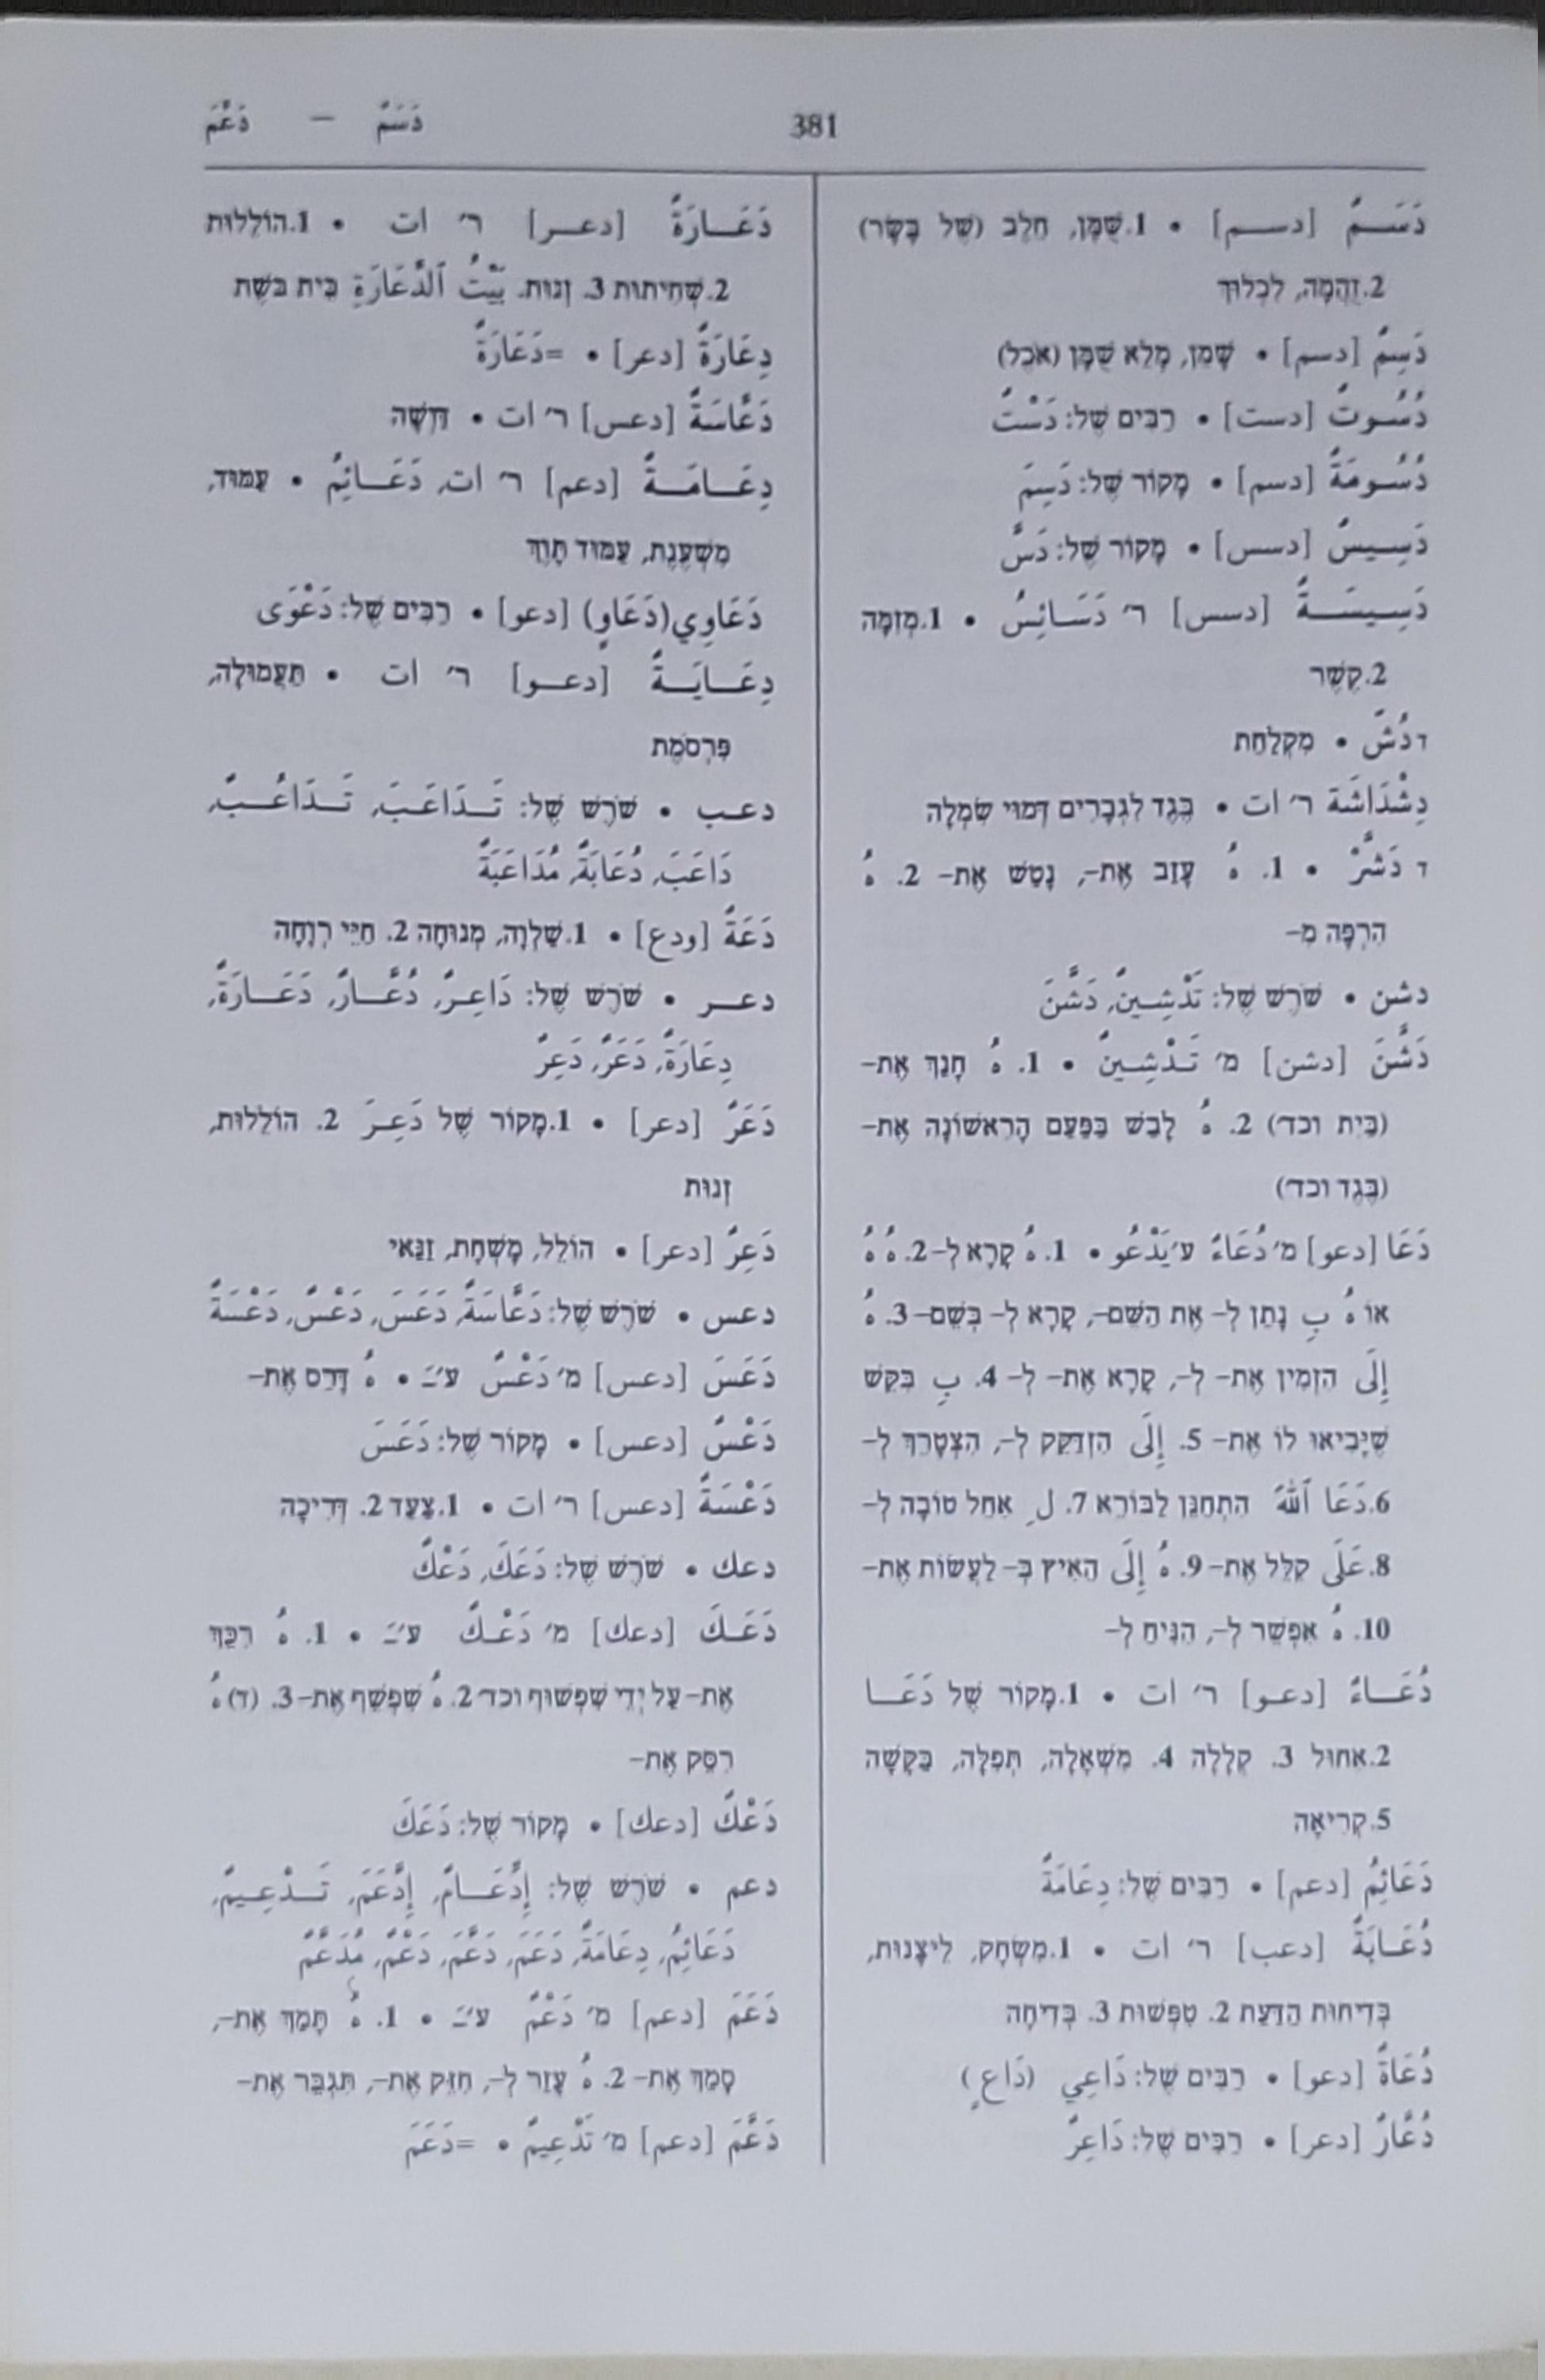 دَسَمٌ – دَعَّمَ
381
دَسَـــمٌ [دســـم] • 1.שֻׁמָּן, חֵלֶב (שֶׁל בָּשָׂר)
2.זֻהֲמָה, לִכְלוּךְ
دَسِمٌ [دسم] • שָׁמֵן, מָלֵא שֻׁמָּן (אֹכֶל)
دُسُوتٌ [دست] • רַבִּים שֶׁל: دَسْتٌ
دُسُومَةٌ [دسم] • מָקוֹר שֶׁל: دَسِمَ
دَسِـيسٌ [دسس] • מָקוֹר שֶׁל: دَسَّ
دَسِـيسَـــةٌ [دسس] ר׳ دَسَـائِسُ • 1.מְזִמָּה
2.קֶשֶׁר
ד دُشٌّ • מִקְלַחַת
دِشْدَاشَة ר׳ ات • בֶּגֶד לִגְבָרִים דְּמוּי שִׂמְלָה
ד دَشَّرْ • 1. هُ עָזַב אֶת–, נָטַשׁ אֶת– 2. هُ
הִרְפָּה מִ–
دشن • שֹׁרֶשׁ שֶׁל: تَدْشِـينٌ, دَشَّنَ
دَشَّنَ [دشن] מ׳ تَـدْشِـينٌ • 1. هُ חָנַךְ אֶת–
(בַּיִת וכד׳) 2. هُ לָבַשׁ בַּפַּעַם הָרִאשׁוֹנָה אֶת–
(בֶּגֶד וכד׳)
دَعَا [دعو] מ׳ دُعَاءٌ ע׳ يَدْعُو • 1. هُ קָרָא לְ– 2. هُ هُ
אוֹ هُ بِ נָתַן לְ– אֶת הַשֵּׁם–, קָרָא לְ– בְּשֵׁם– 3. هُ
إِلَى הִזְמִין אֶת– לְ–, קָרָא אֶת– לְ– 4. بِ בִּקֵּשׁ
שֶׁיָּבִיאוּ לוֹ אֶת– 5. إِلَى הִזְדַּקֵּק לְ–, הִצְטָרֵךְ לְ–
6.دَعَا ٱللهَ הִתְחַנֵּן לַבּוֹרֵא 7. لِ אִחֵל טוֹבָה לְ–
8.عَلَى קִלֵּל אֶת– 9. هُ إِلَى הֵאִיץ בְּ– לַעֲשׂוֹת אֶת–
10. هُ אִפְשֵׁר לְ–, הִנִּיחַ לְ–
دُعَـــاءٌ [دعـو] ר׳ ات • 1.מָקוֹר שֶׁל دَعَـــا
2.אִחוּל 3. קְלָלָה 4. מִשְׁאָלָה, תְּפִלָּה, בַּקָּשָׁה
5.קְרִיאָה
دَعَائِمُ [دعم] • רַבִּים שֶׁל: دِعَامَةٌ
دُعَـابَةٌ [دعب] ר׳ ات • 1.מִשְׂחָק, לֵיצָנוּת,
בְּדִיחוּת הַדַּעַת 2. טִפְּשׁוּת 3. בְּדִיחָה
دُعَاةٌ [دعو] • רַבִּים שֶׁל: دَاعِي (دَاعٍ)
دُعَّارٌ [دعر] • רַבִּים שֶׁל: دَاعِرٌ
دَعَـــارَةٌ [دعـــر] ר׳ ات • 1.הוֹלֵלוּת
2.שְׁחִיתוּת 3. זְנוּת. بَيْتُ ٱلدَّعَارَةِ בֵּית בֹּשֶׁת
دِعَارَةٌ [دعر] • =دَعَارَةٌ
دَعَّاسَةٌ [دعس] ר׳ ات • דַּוְשָׁה
دِعَـــامَـــةٌ [دعم] ר׳ ات, دَعَـــائِمُ • עַמּוּד,
מִשְׁעֶנֶת, עַמּוּד תָּוֶךְ
دَعَاوِي(دَعَاوٍ) [دعو] • רַבִּים שֶׁל: دَعْوَى
دِعَـــايَـــةٌ [دعـــو] ר׳ ات • תַּעֲמוּלָה,
פִּרְסֹמֶת
دعـب • שֹׁרֶשׁ שֶׁל: تَـــدَاعَـــبَ, تَـــدَاعُـــبٌ,
دَاعَبَ, دُعَابَةٌ, مُدَاعَبَةٌ
دَعَةٌ [ودع] • 1.שַׁלְוָה, מְנוּחָה 2. חַיֵּי רְוָחָה
دعـــر • שֹׁרֶשׁ שֶׁל: دَاعِـرٌ, دُعَّـــارٌ, دَعَـــارَةٌ,
دِعَارَةٌ, دَعَرٌ, دَعِرٌ
دَعَرٌ [دعر] • 1.מָקוֹר שֶׁל دَعِـرَ 2. הוֹלֵלוּת,
זְנוּת
دَعِرٌ [دعر] • הוֹלֵל, מָשְׁחָת, זַנַּאי
دعس • שֹׁרֶשׁ שֶׁל: دَعَّاسَةٌ, دَعَسَ, دَعْسٌ, دَعْسَةٌ
دَعَسَ [دعس] מ׳ دَعْسٌ ע׳ـَ • هُ דָּרַס אֶת–
دَعْسٌ [دعس] • מָקוֹר שֶׁל: دَعَسَ
دَعْسَةٌ [دعس] ר׳ ات • 1.צַעַד 2. דְּרִיכָה
دعك • שֹׁרֶשׁ שֶׁל: دَعَكَ, دَعْكٌ
دَعَـــكَ [دعك] מ׳ دَعْـــكٌ ע׳ـَ • 1. هُ רִכֵּךְ
אֶת– עַל יְדֵי שִׁפְשׁוּף וכד׳ 2. هُ שִׁפְשֵׁף אֶת– 3. (ד) هُ
רִסֵּק אֶת–
دَعْكٌ [دعك] • מָקוֹר שֶׁל: دَعَكَ
دعم • שֹׁרֶשׁ שֶׁל: إِدِّعَـــامٌ, إِدَّعَمَ, تَـــدْعِـيمٌ,
دَعَائِمُ, دِعَامَةٌ, دَعَمَ, دَعَّمَ, دَعْمٌ, مُدَعَّمٌ
دَعَمَ [دعم] מ׳ دَعْمٌ ע׳ـَ • 1. هُ תָּמַךְ אֶת–,
סָמַךְ אֶת– 2. هُ עָזַר לְ–, חִזֵּק אֶת–, תִּגְבֵּר אֶת–
دَعَّمَ [دعم] מ׳ تَدْعِيمٌ • =دَعَمَ